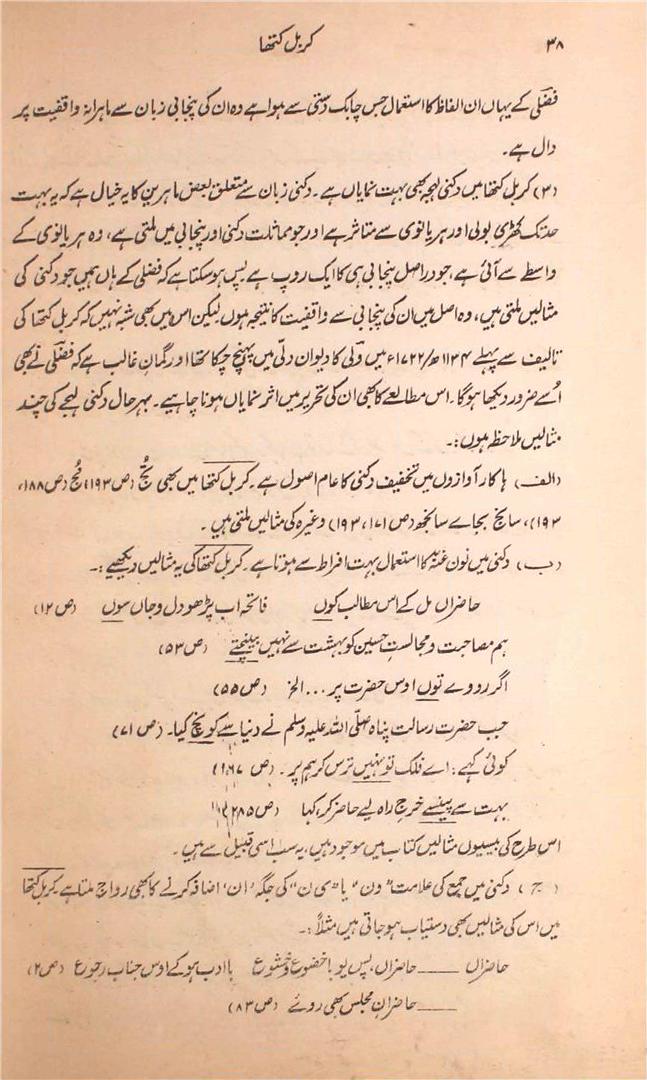 ۳۸ کربل کتھا
فضلی کے یہاں ان الفاظ کا استعمال جس چابک دستی سے ہوا ہے وہ ان کی پنجابی زبان سے ماہرانہ واقفیت پر
دال ہے۔
(۳) کربل کتھا میں دکنی لہجہ بھی بہت نمایاں ہے۔ دکنی زبان سے متعلق بعض ماہرین کا یہ خیال ہے کہ یہ بہت
حد تک کھڑی بولی اور ہریانوی سے متاثر ہے اور جو مماثلت دکنی اور پنجابی میں ملتی ہے، وہ ہریانوی کے
واسطے سے آئی ہے، جو دراصل پنجابی ہی کا ایک روپ ہے پس ہوسکتا ہے کہ فضلی کے ہاں ہمیں جو دکنی کی
مثالیں ملتی ہیں، وہ اصل میں ان کی پنجابی سے واقفیت کا نتیجہ ہوں لیکن اس میں بھی شبہ نہیں کہ کربل کتھا کی
تالیف سے پہلے ۱۱۳۴ھ/۱۷۲۲ء میں ولی کا دیوان دلی میں پہنچ چکا تھا اور گمان غالب ہے کہ فضلی نے بھی
اُسے ضرور دیکھا ہوگا۔ اس مطالعے کا بھی ان کی تحریر میں اثر نمایاں ہونا چاہیے۔ بہرحال دکنی لہجے کی چند
مثالیں ملاحظہ ہوں:۔
(الف) ہا کار آوازوں میں تخفیف دکنی کا عام اصول ہے۔ کربل کتھا میں بھی تُج (ص ۱۹۳) مُج (ص ۱۸۸،
۱۹۳)، سانج بجاے سانجھ (ص ۱۷۱، ۱۹۳) وغیرہ کی مثالیں ملتی ہیں۔
(ب) دکنی میں نون غنہ کا استعمال بہت افراط سے ہوتا ہے۔ کربل کتھا کی یہ مثالیں دیکھیے:۔
حاضراں مل کے اس مطالب کوں فاتحہ اب پڑھو دل و جاں سوں (ص ۱۲)
ہم مصاحبت و مجالست حسین کو بہشت سے نہیں بینچتے (ص ۵۳)
اگر رووے توں اوس حضرت پر ... الخ (ص ۵۵)
جب حضرت رسالت پناہ صلی اللہ علیہ وسلم نے دنیا سے کونچ کیا۔ (ص ۷۱)
کوئی کہے: اے فلک تو نہیں ترس کر ہم پر۔ (ص ۱۶۷)
بہت سے پینسے خرج راہ لیے حاضر کر، کہا (ص ۲۸۵)
اس طرح کی بیسیوں مثالیں کتاب میں موجود ہیں، یہ سب اسی قبیل سے ہیں۔
(ج) دکنی میں جمع کی علامت "ون" یا "ی ن" کی جگہ 'ان' اضافہ کرنے کا بھی رواج ملتا ہے۔ کربل کتھا
میں اس کی مثالیں بھی دستیاب ہو جاتی ہیں مثلاً:۔
حاضراں —— حاضراں، پس یو باخضوع و خشوع باادب ہو کے اوس جناب رجوع (ص ۲)
—— حاضران مجلس بھی روئے (ص ۸۳)